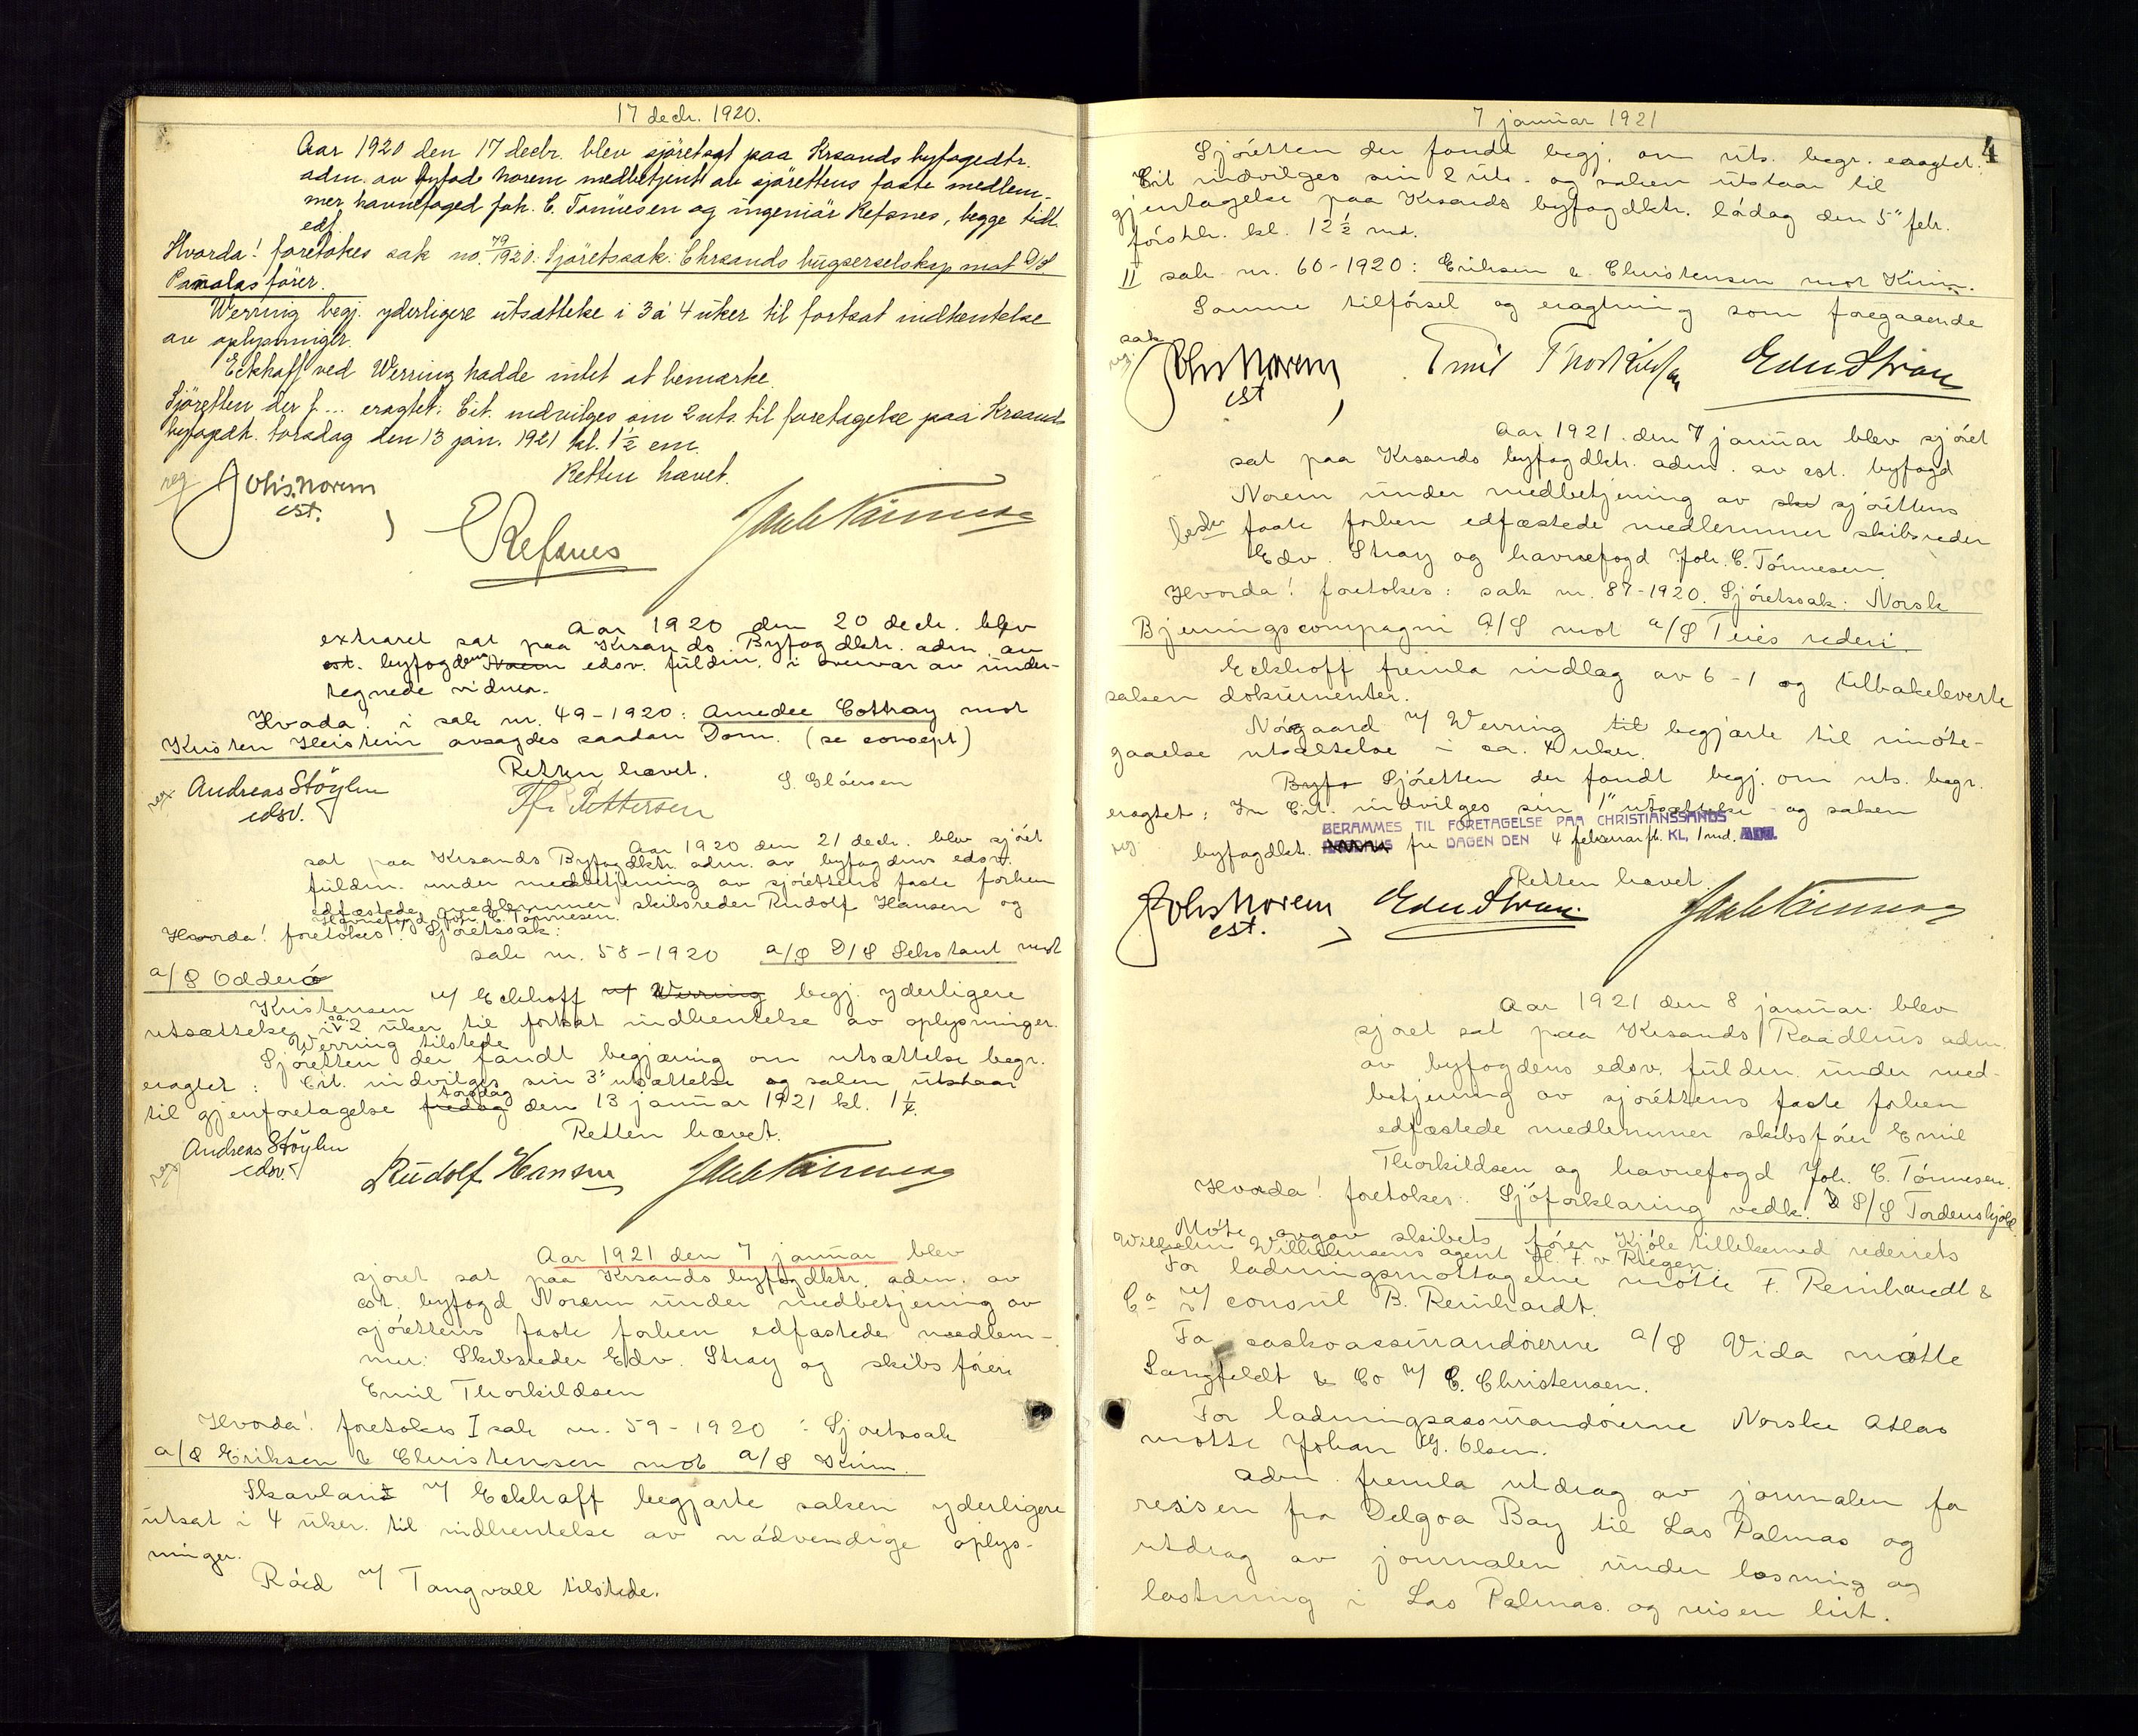 17 decb. 1920.
Aar 1920 den 17 decbr. blev sjöretsat paa Krsands byfogedktr.
adm. av byfode Norem medbetjent av sjörettens faste medlem-
mer havnefoged Joh. C. Tönnesen og ingeniör Refsnes, begge tidl.
edf.
Hvorda! foretokes sak no. 79/1920: Sjöretssak: Chrsands bugserselskap mot D/S
Panolas förer.
Werring begj. yderligere utsættelse i 3 à 4 uker til fortsat indhentelse
av oplysninger.
Eckhoff ved Werring hadde intet at bemærke.
Sjöretten der f... eragtet: Cit. indvilges sin 2 uts. til foretagelse paa Krsands
byfogdk. torsdag den 13 jan. 1921 kl. 1 1/2 em.
Retten hævet.
reg Johs. Norem
est.
Refsnes
Aar 1920 den 20 decb. blev
extraret sat paa Krsands Byfogdktr. adm. av
est. byfogdens Norem edsv. fuldm. i overvær av under-
tegnede vidner.
Hvorda! i sak nr. 49-1920: Amedee Cottray mot
Kristen Heistein avsagdes saadan Dom. (se concept)
Retten hævet.
reg Andreas Stöylen
edsv.
Pettersen
Aar 1920 den 21 decb. blev sjöret
sat paa Krsands Byfogdktr. adm. av byfogdens edsv.
fuldm. under medbetjening av sjörettens faste forhen
edfæstede medlemmer skibsreder Rudolf Hansen og
Havnefogd Joh. C. Tönnesen.
Hvorda! foretokes: Sjöretssak:
sak nr. 58-1920 a/s D/S Sekstant mot
a/S Odderö
Kristensen v/ Eckhoff v/ Werring begj. yderligere
utsættelse i ca. 2 uker til fortsat indhentelse av oplysninger.
Werring tilstede
Sjöretten der fandt begjæring om utsættelse begr.
eragtet: Cit. indvilges sin 3" utsættelse og saken utstaar
til gjenforetagelse fredag torsdag den 13 januar 1921 kl. 1 1/2.
Retten hævet.
reg Andreas Stöylen
edsv.
Rudolf Hansen
Aar 1921 den 7 januar blev
sjöret sat paa Krsands byfogdktr. adm. av
est. byfogd Norem under medbetjening av
sjörettens faste forhen edfæstede medlem-
mer: Skibsreder Edv. Stray og skibsförer
Emil Thorkildsen
Hvorda! foretokes I sak nr. 59-1920: Sjöretssak
a/S Eriksen & Christensen mot a/S Kinn.
Skavlan v/ Eckhoff begjærte saken yderligere
utsat i 4 uker til indhentelse av nödvendige oplys-
ninger.
Röed v/ Tangvall tilstede.
7 januar 1921
4
Sjöretten der fandt begj. om uts. begr. eragtet:
Cit. indvilges sin 2 uts. og saken utstaar til
gjentagelse paa Krsands byfogdktr. lördag den 5" febr.
förstk. kl. 12 1/2 md.
II sak nr. 60-1920: Eriksen & Christensen mot Kinn.
Samme tilförsel og eragtning som foregaaende
sak
reg. Johs Norem
est
Emil Thorkildsen
Edv Stray
Aar 1921 den 7 januar blev sjöret
sat paa Krsands byfogdktr. adm. av est. byfogd
Norem under medbetjening av sjörettens
faste forhen edfæstede medlemmer skibsreder
Edv. Stray og havnefogd Joh. C. Tönnesen.
Hvorda! foretokes: sak nr. 87-1920. Sjöretssak: Norsk
Bjerningscompagni A/S mot a/S Treies rederi.
Eckhoff fremla indlæg av 6-1 og tilbakeleverte
saken dokumenter.
Nörgaard v/ Werring til begjærte til imöte-
gaaelse utsættelse i ca. 4 uker.
Byfo Sjöretten der fandt begj. om uts. begr.
eragtet: In Cit. indvilges sin 1" utsættelse og saken
BERAMMES TIL FORETAGELSE PAA CHRISTIANSSANDS
reg byfogdktr. fre DAGEN DEN 4 februar fk. KL, 1 md.
Retten hævet.
Johs Norem
est.
Edv Stray
Aar 1921 den 8 januar blev
sjöret sat paa Krsands Raadhus adm.
av byfogdens edsv. fuldm. under med-
betjening av sjörettens faste forhen
edfæstede medlemmer skibsförer Emil
Thorkildsen og havnefogd Joh. C. Tönnesen.
Hvorda! foretokes: Sjöforklaring vedk. S/S Tordenskjold
Möte avgav skibets förer Kjöle tillikemed rederiets
Wilhelm Wilhelmsens agent H. F. v Riegen.
For ladningsmottagerne mötte F. Reinhardt &
Co v/ consul B. Reinhardt.
For kaskoassurandörerne a/S Vida mötte
Langfeldt & Co v/ C. Christensen.
For ladningsassurandörerne Norske Atlas
mötte Johan G. Olsen.
Adm. fremla utdrag av journalen for
reisen fra Delgoa Bay til Las Palmas og
utdrag av journalen under losning og
lastning i Las Palmas og reisen hit.